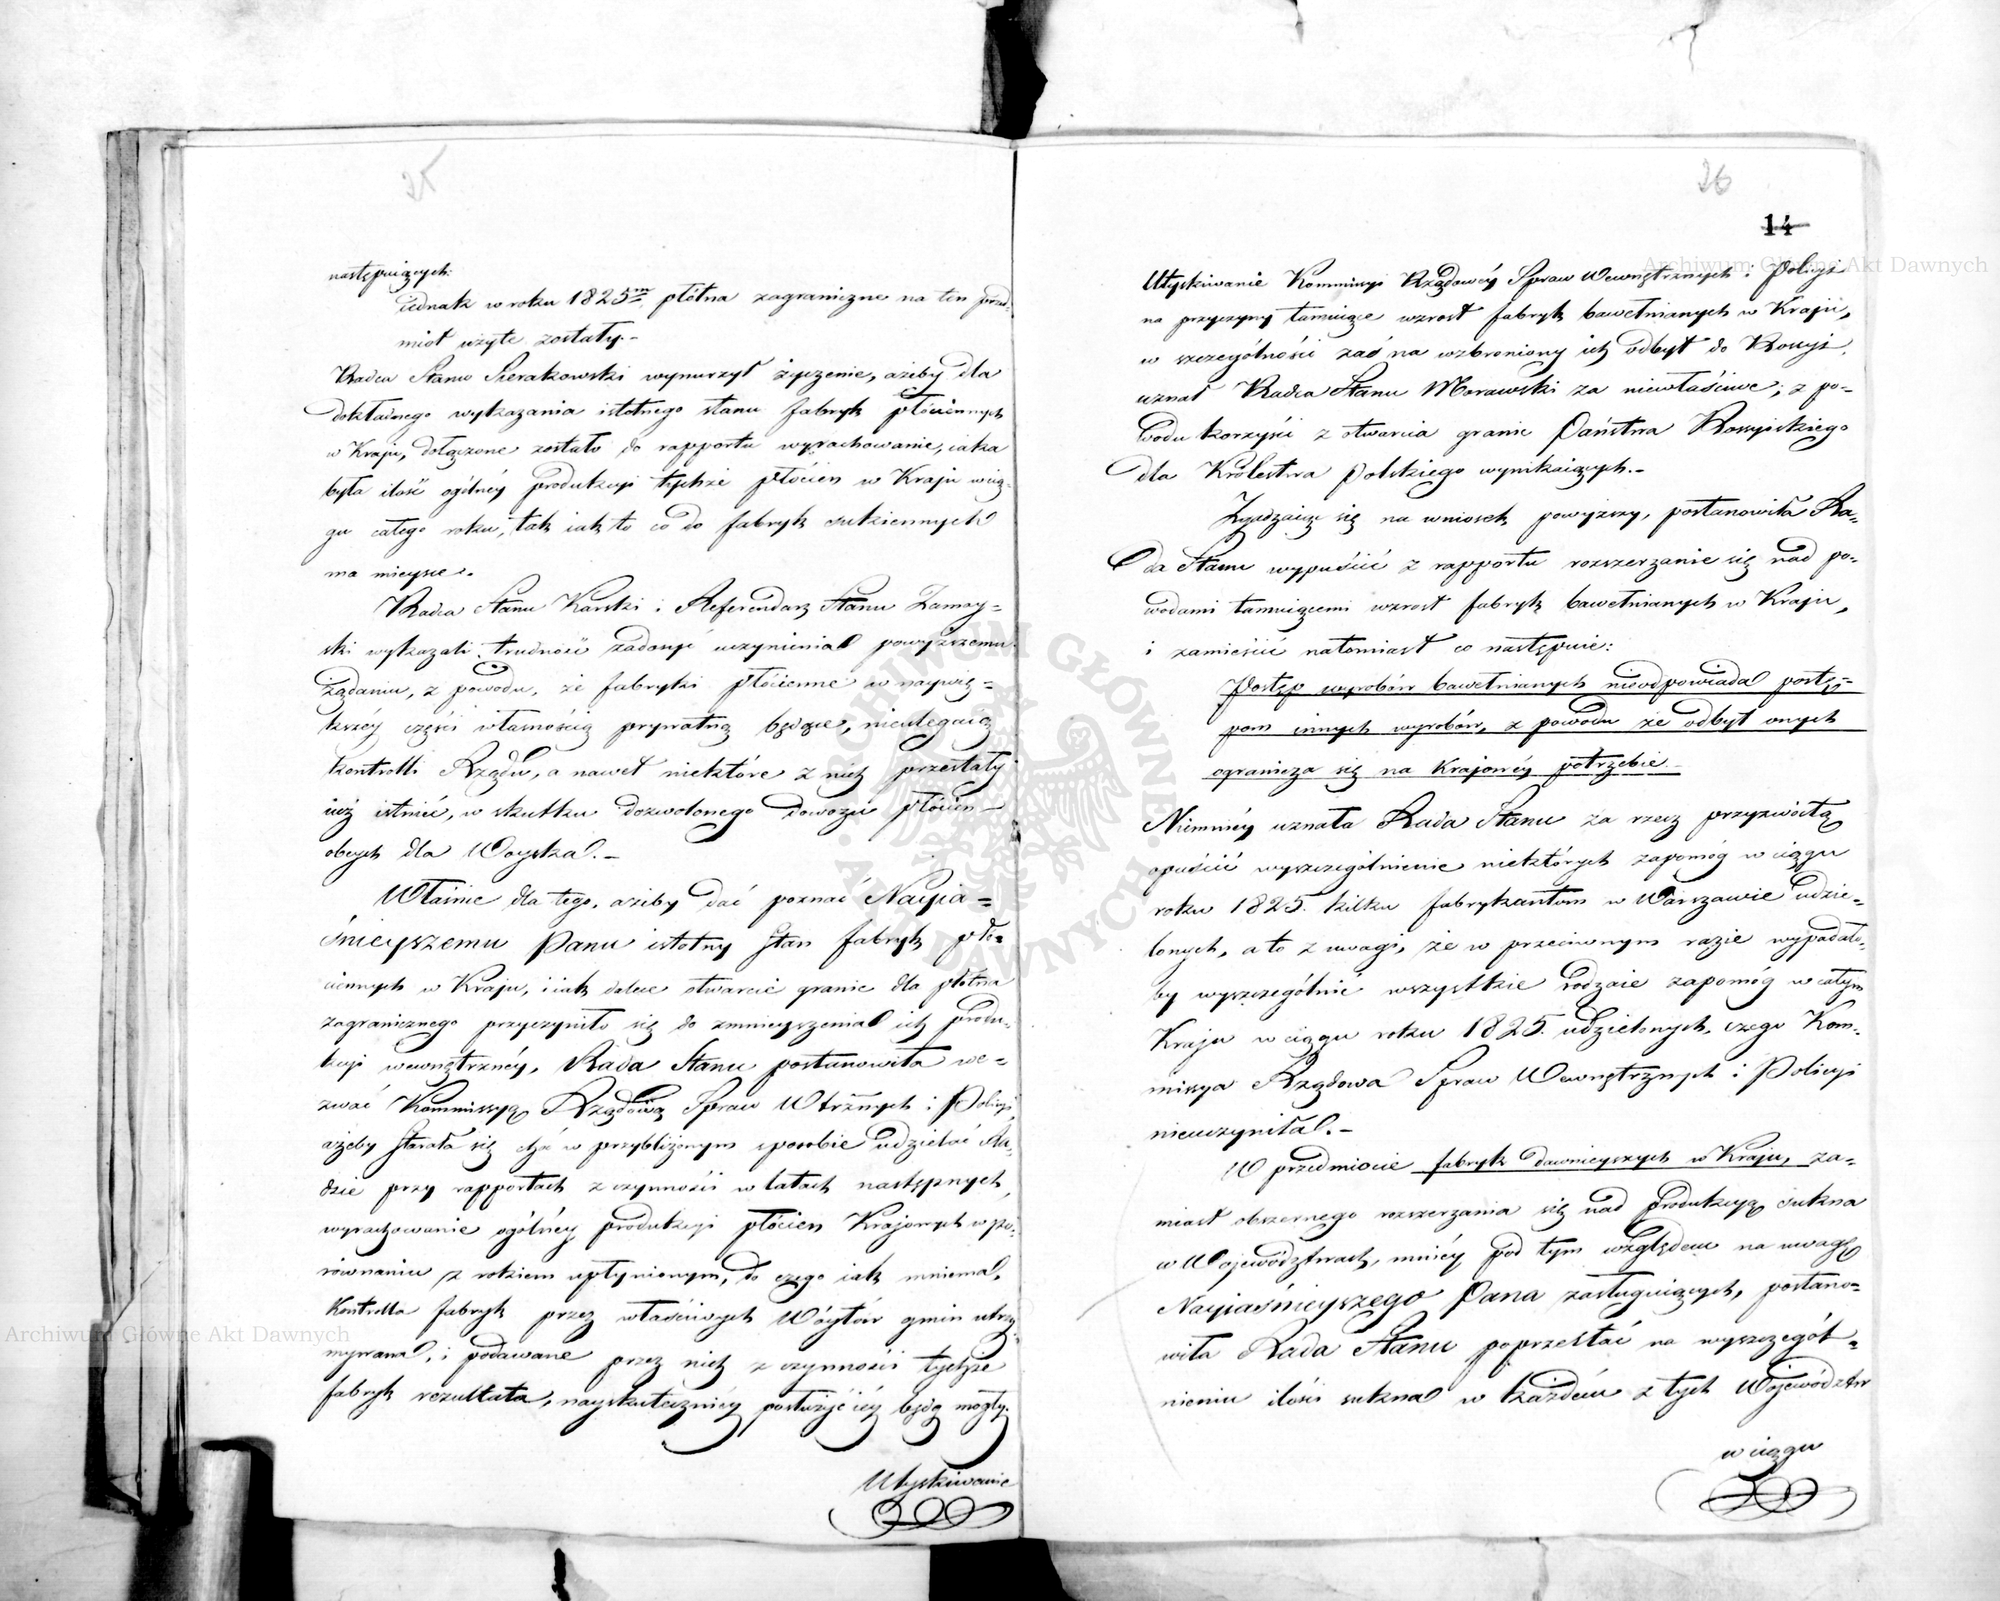 25
następuiących:
iednak w roku 1825tym płótna zagraniczne na ten przed-
miot użyte zostały.-
Radca Stanu Sierakowski wynurzył życzenie, ażeby dla
dokładnego wykazania istotnego stanu fabryk płóciennych
w Kraju, dołączone zostało do rapportu wyrachowanie, iaka
była ilość ogólnéy produkcyi tychże płócien w Kraju w cią-
gu całego roku, tak iak to co do fabryk sukiennych
ma mieysce.
Radca Stanu Karski i Referendarz Stanu Zamoy-
ski wykazali trudność zadosyć uczynienia powyższemu
żądaniu, z powodu, że fabryki płócienne w naywię-
kszéy części własnością prywatną będące, nieulegaią
kontrolli Rządu, a nawet niektóre z nich przestały
iuż istnieć, w skutku dozwolonego dowozu płócien
obcych dla Woyska.-
Właśnie dla tego, ażeby dać poznać Nayia-
śnieyszemu Panu istotny stan fabryk płó-
ciennych w Kraju, i iak dalece otwarcie granic dla płótna
zagranicznego przyczyniło się do zmnieyszenia ich produ-
kcyi wewnętrznéy, Rada Stanu postanowiła we-
zwać Kommissyą Rządową Spraw Wtrznych i Policyi,
ażeby starała się choć w przybliżonym sposobie udzielać Ra-
dzie przy rapportach z czynności w latach następnych,
wyrachowanie ogólnéy produkcyi płócien Krajowych w po-
równaniu z rokiem upłynionym, do czego iak mniema,
Kontrolla fabryk przez właściwych Wóytów gmin utrzy-
mywana, i podawane przez nich z czynności tychże
fabryk rezultata, nayskuteczniéy posłużyć iéy będą mogły.
Utyskiwanie
26
14
Utyskiwanie Kommissyi Rządowéy Spraw Wewnętrznych i Policyi
na przyczyny tamuiące wzrost fabryk bawełnianych w Kraju,
w szczególności zaś na wzbroniony ich odbyt do Rossyi,
uznał Radca Stanu Morawski za niewłaściwe; z po-
wodu korzyści z otwarcia granic Państwa Rossyiskiego
dla Królestwa Polskiego wynikaiących.-
Zgadzaiąc się na wniosek powyższy, postanowiła Ra-
da Stanu wypuścić z rapportu rozszerzanie się nad po-
wodami tamuiącemi wzrost fabryk bawełnianych w Kraju,
i zamieścić natomiast co następuie:
Postęp wyrobów bawełnianych nieodpowiada postę-
pom innych wyrobów, z powodu że odbyt onych
ogranicza się na Krajowéy potrzebie.-
Niemniéy uznała Rada Stanu za rzecz przyzwoitą
opuścić wyszczególnienie niektórych zapomóg w ciągu
roku 1825. kilku fabrykantom w Warszawie udzie-
lonych, a to z uwagi, że w przeciwnym razie wypadało-
by wyszczególnić wszystkie rodzaie zapomóg w całym
Kraju w ciągu roku 1825. udzielonych, czego Kom-
missya Rządowa Spraw Wewnętrznych i Policyi
nieuczyniła.-
W przedmiocie fabryk dawnieyszych w Kraju, za-
miast obszernego rozszerzania się nad produkcyą sukna
w Województwach, mniéy pod tym względem na uwagę
Nayiaśnieyszego Pana zasługuiących, postano-
wiła Rada Stanu poprzestać na wyszczegól-
nieniu ilości sukna w każdém z tych Województw
w ciągu
Archiwum Główne Akt Dawnych
Archiwum Główne Akt Dawnych
ARCHIWUM GŁÓWNE AKT DAWNYCH